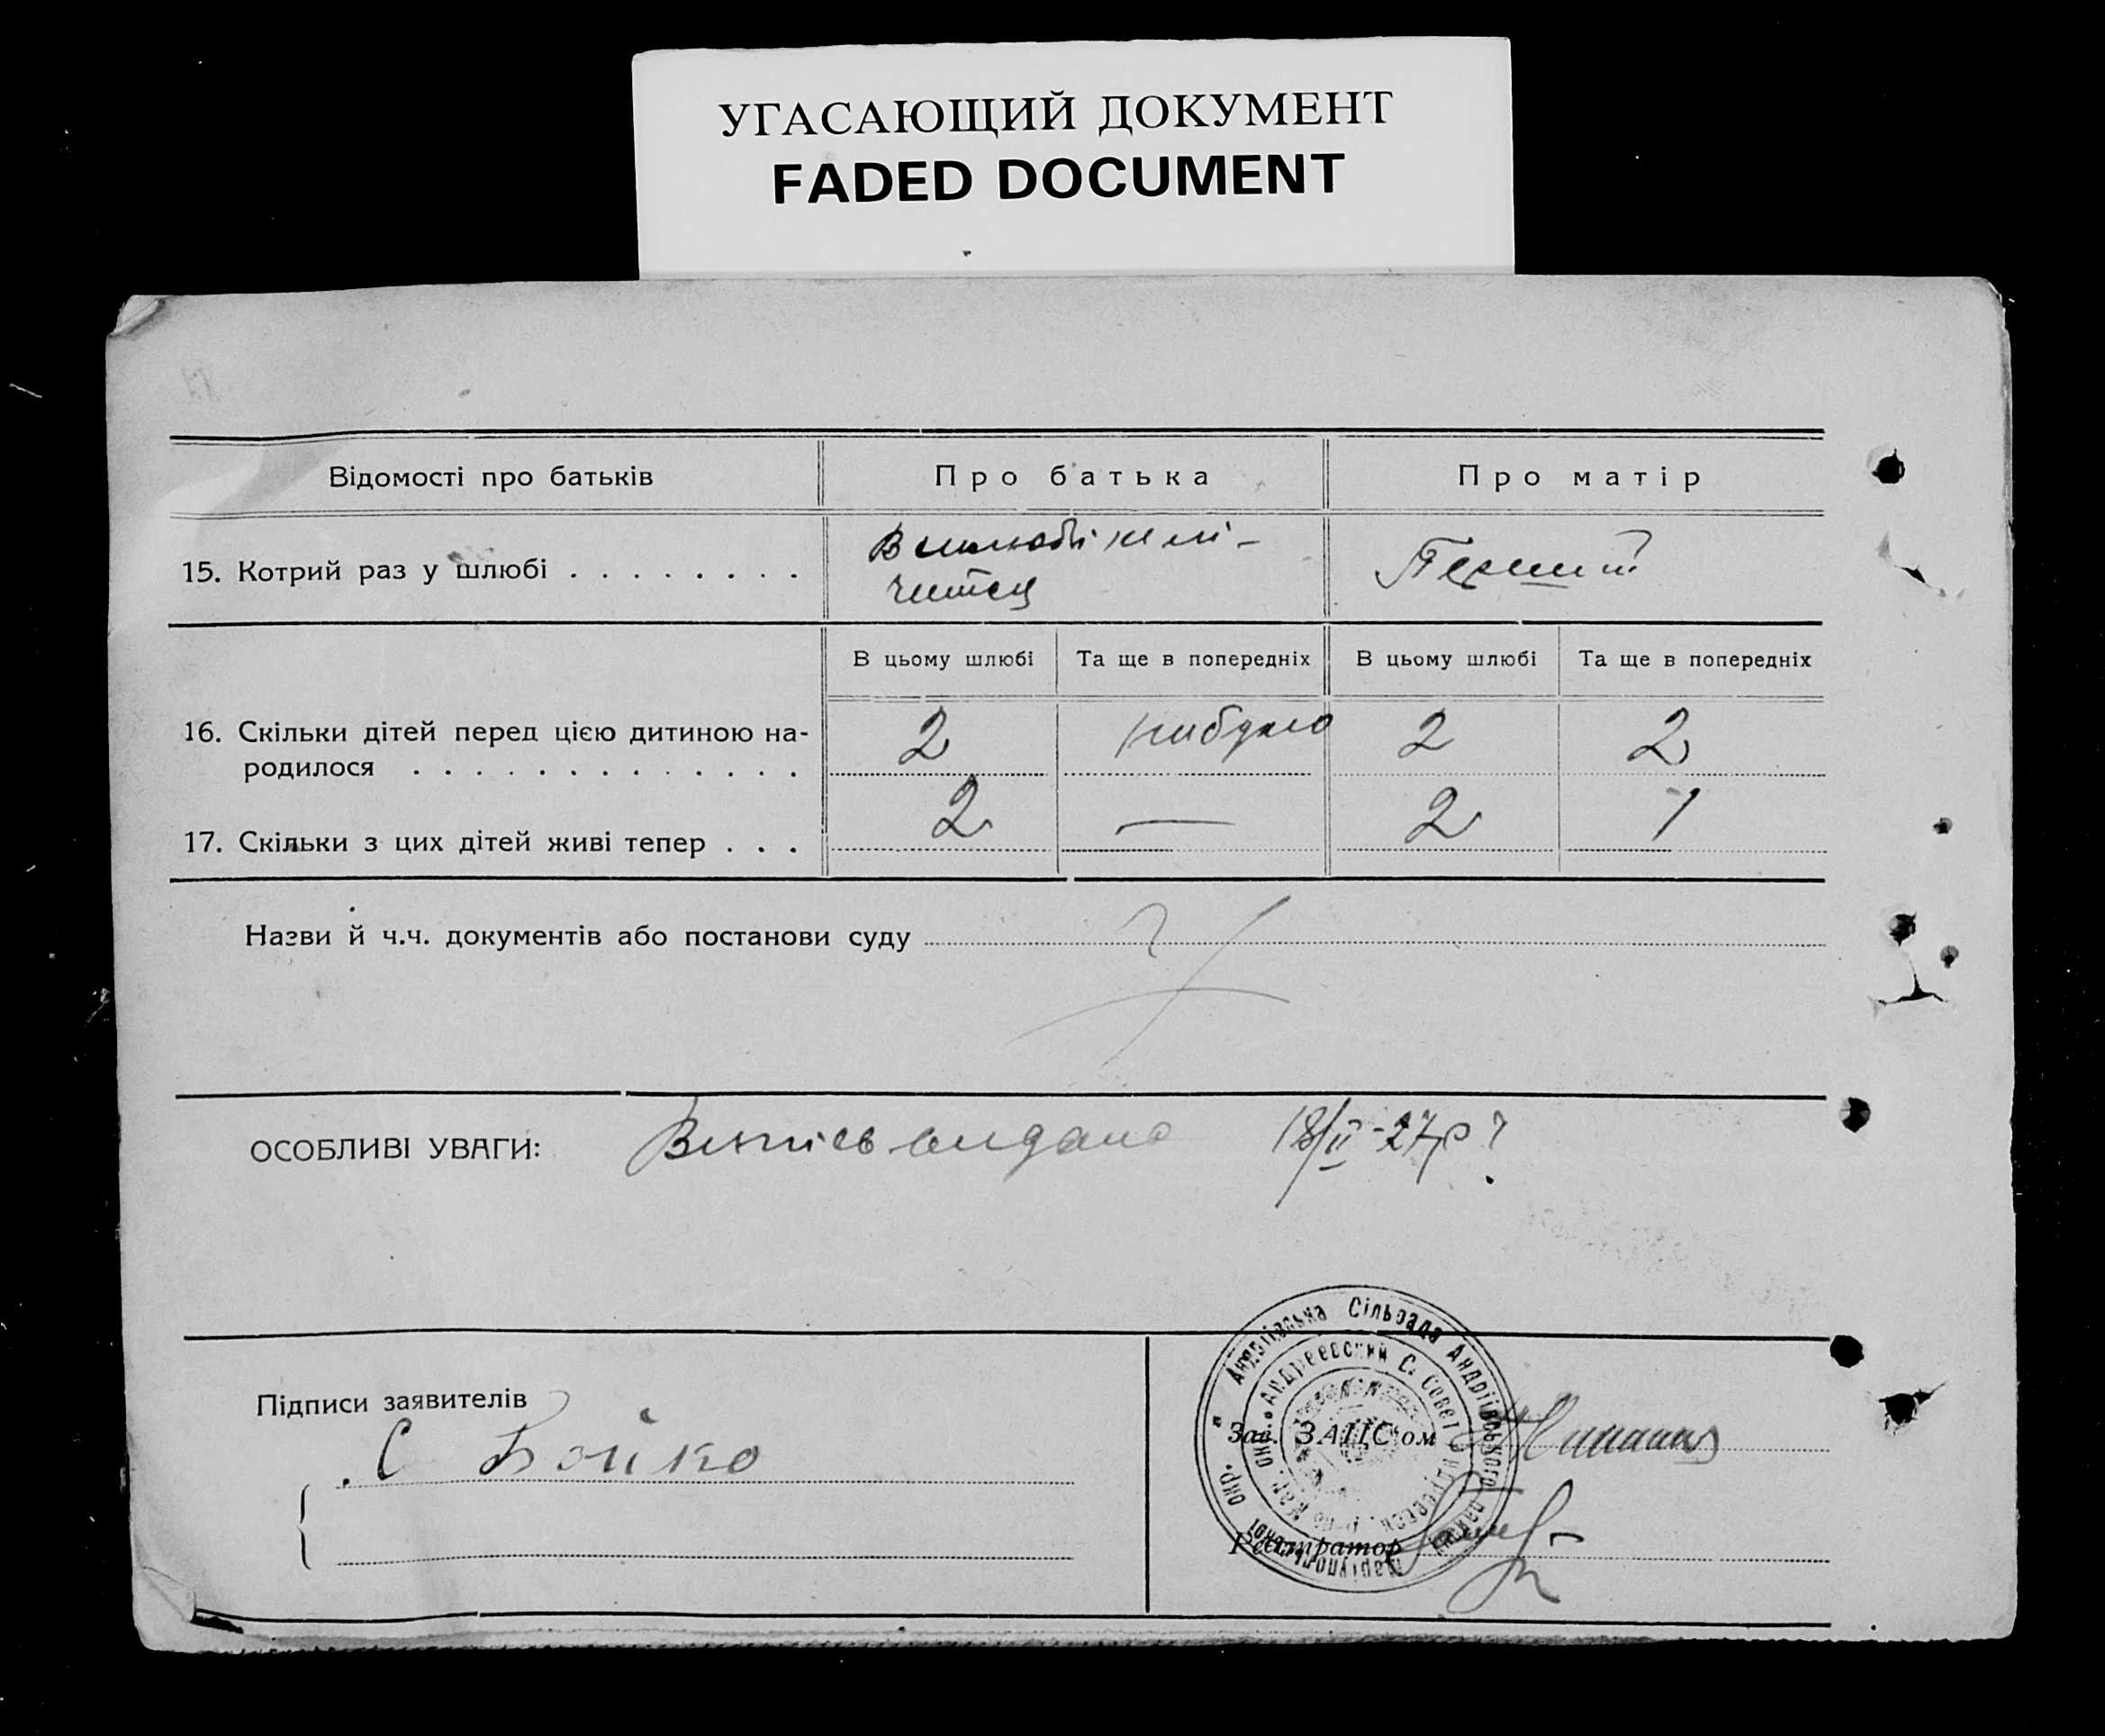 УГАСАЮЩИЙ ДОКУМЕНТ
FADED DOCUMENT
Відомості про батьків
Про батька
Про матір
15. Котрий раз у шлюбі . . . . . . . .
В шлюбі не лі-
читця
Перший
В цьому шлюбі
Та ще в попередніх
В цьому шлюбі
Та ще в попередніх
16. Скільки дітей перед цією дитиною на-
родилося . . . . . . . . . . . . . .
2
небуло
2
2
17. Скільки з цих дітей живі тепер . . .
2
—
2
1
Назви й ч.ч. документів або постанови суду
ОСОБЛИВІ УВАГИ:
Випись видана 18/II-27р
Підписи заявителів
С Бойко
Андріївська Сільрада Андріївського району Маріупольської окр.
Андреевский С. Совет
Зав. ЗАГС'ом
Реєстратор